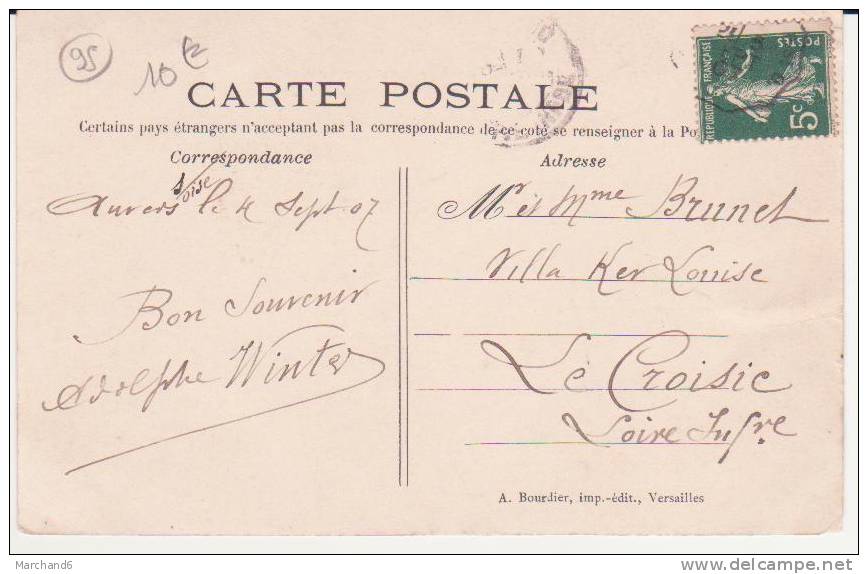 95
10 €
CARTE POSTALE
Certains pays étrangers n'acceptant pas la correspondance de ce côté se renseigner à la Po
Correspondance
Adresse
RÉPUBLIQUE FRANÇAISE
POSTES
5c
s/oise
Auvers le 4 Sept 07
Bon Souvenir
Adolphe Winter
Mr et Mme Brunet
Villa Ker Louise
Le Croisic
Loire Infre
A. Bourdier, imp.-édit., Versailles
Marchand6
delcampe.net